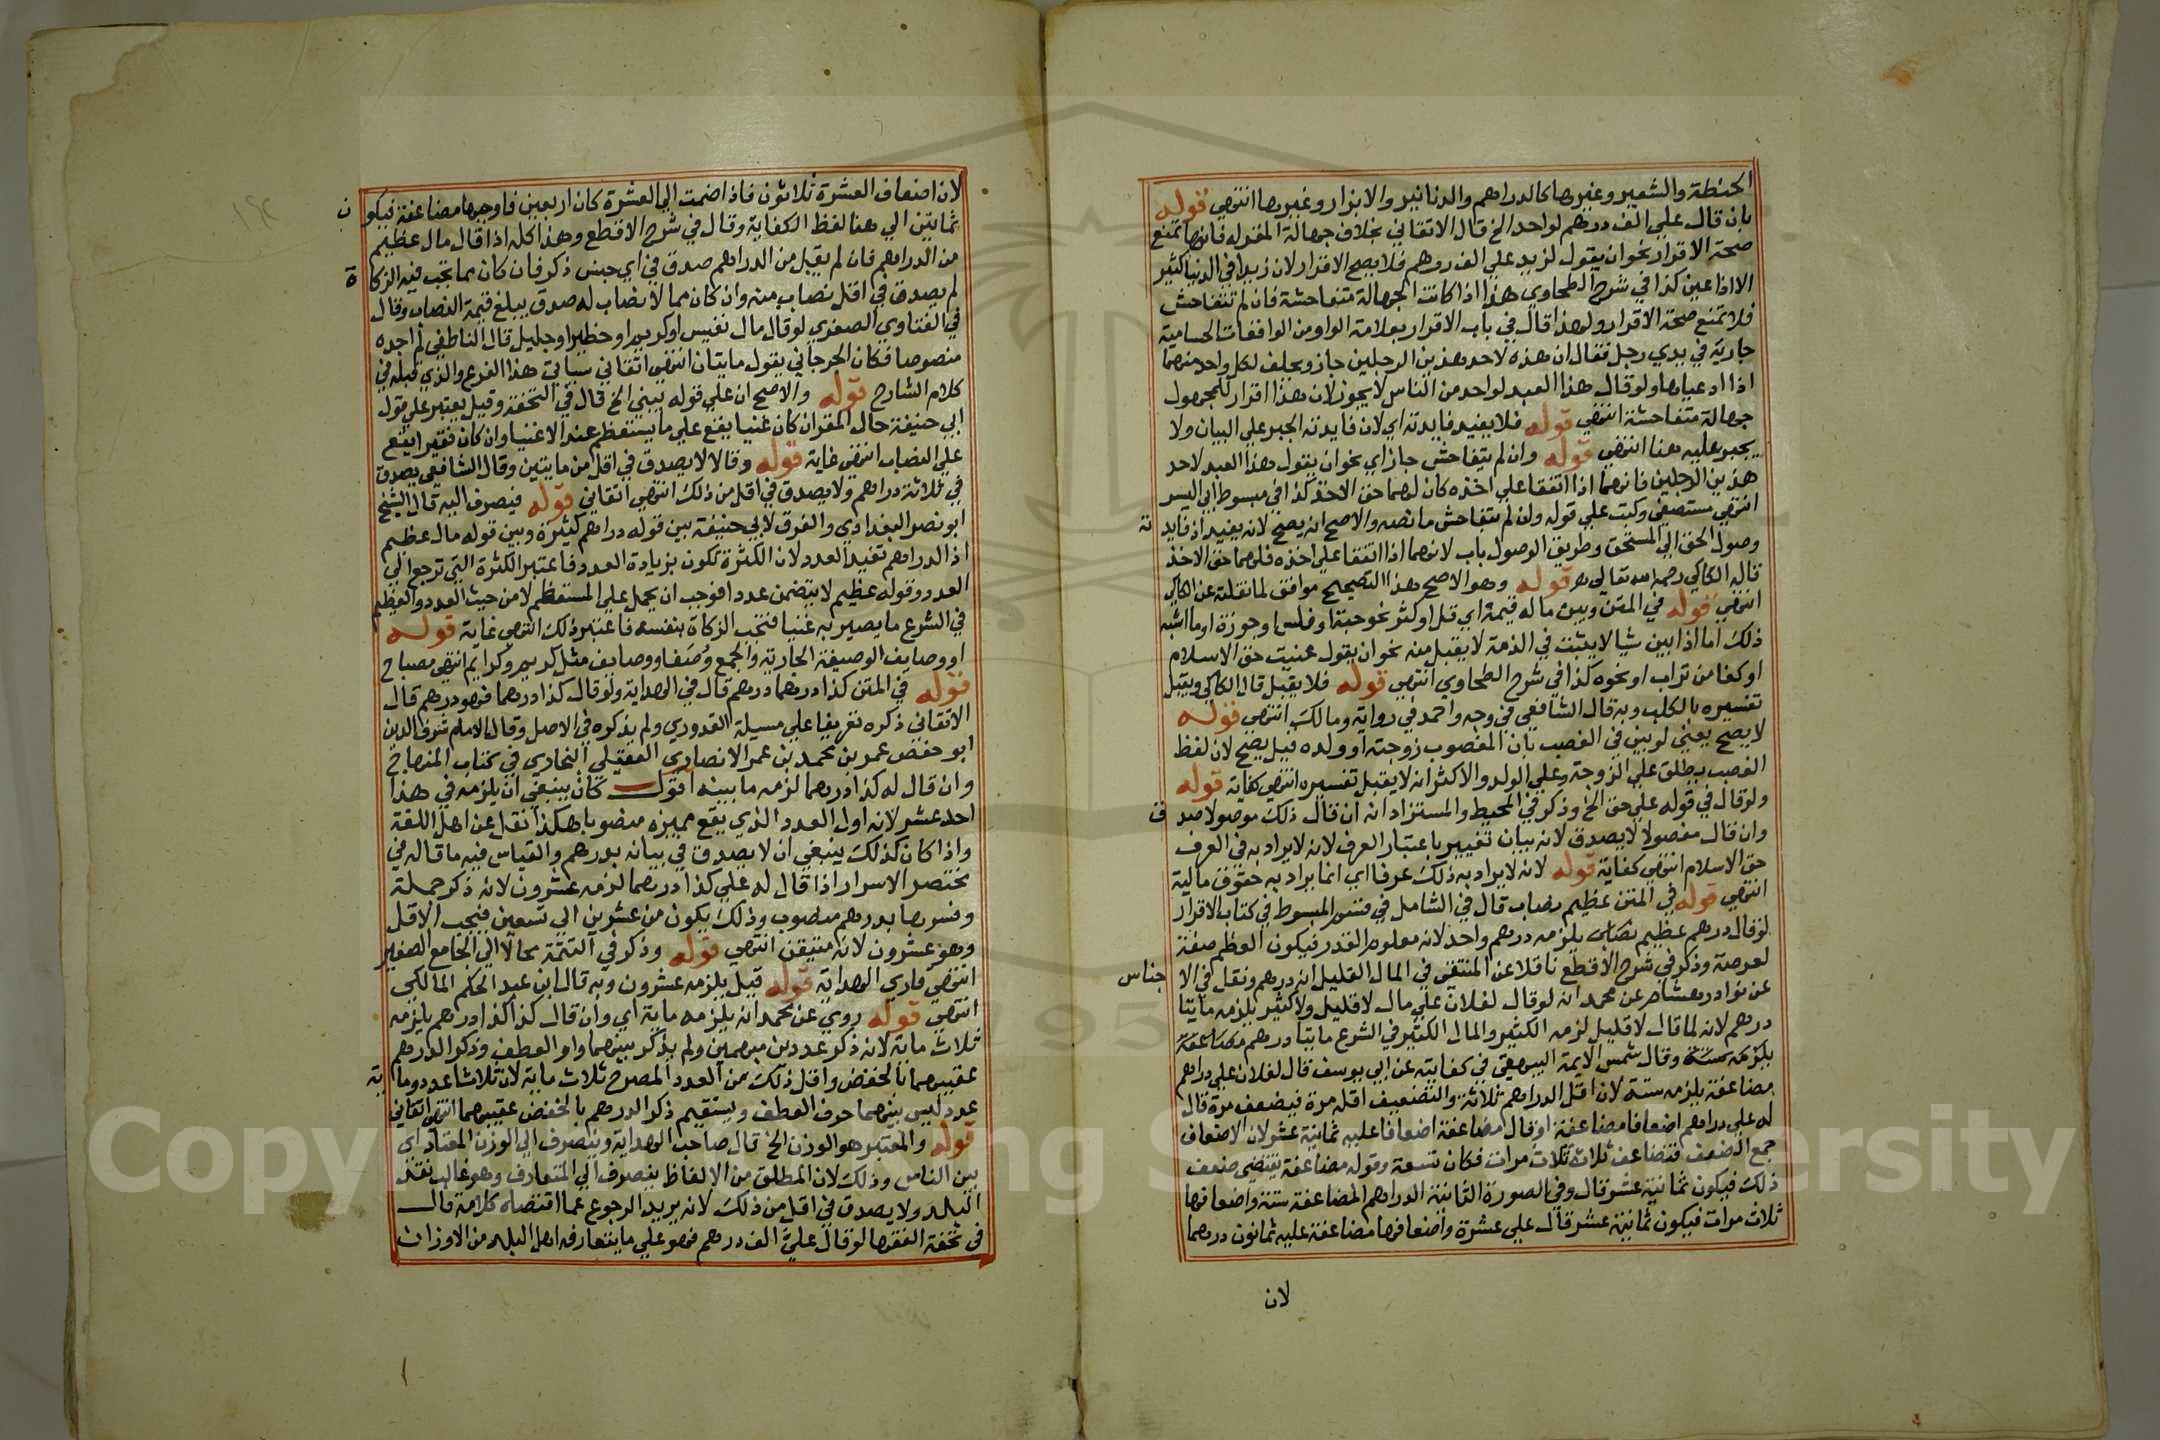 الحنطة والشعير وغيرها كالدراهم والدنانير والابزار وغيرها انتهى قوله
بان قال علي الف درهم لواحد الخ قال الاتقاني بخلاف جهالة المقر له فانها تمنع
صحة الاقرار نحو ان يقول لزيد علي الف درهم فلا يصح الاقرار لان زيدا في الدنيا كثير
الا اذا عين كذا في شرح الطحاوي هذا اذا كانت الجهالة متفاحشة فان لم تتفاحش
فلا تمنع صحة الاقرار ولهذا قال في باب الاقرار بعلامة الواو من الواقعات الحسامية
جارية في يدي رجل فقال ان هذه لاحد هذين الرجلين جاز ويحلف لكل واحد منهما
اذا ادعياها ولو قال هذا العبد لواحد من الناس لا يجوز لان هذا اقرار للمجهول
جهالة متفاحشة انتهى قوله فلا يفيد فايدته اي لان فايدته الجبر علي البيان ولا
يجبر عليه هنا انتهى قوله وان لم يتفاحش جاز اي نحو ان يقول هذا العبد لاحد
هذين الرجلين فانهما اذا اتفقا علي اخذه كان لهما حق الاخذ كذا في مبسوط ابي اليسر
انتهى مستصفى وكتب علي قوله وان لم يتفاحش ما نصه والاصح انه يصح لانه يفيد اذ فايد ته
وصول الحق الي المستحق وطريق الوصول باب لانهما اذا اتفقا علي اخذه فلهما حق الاخذ
قاله الكاكي رحمه الله تعالي قوله وهو الاصح هذا التصحيح موافق لما نقلته عن الكاكي
انتهى قوله في المتن وبين ما له قيمة اي قل او كثر نحو حبة او فلس او جوزة او ما اشبه
ذلك اما اذا بين شيا لا يثبت في الذمة لا يقبل منه نحو ان يقول عنيت حق الاسلام
او كفا من تراب او نحوه كذا في شرح الطحاوي انتهى قوله فلا يقبل قال الكاكي ويقبل
تفسيره بالكلب وبه قال الشافعي في وجه واحمد في رواية ومالك انتهى قوله
لا يصح يعني لو بين في الغصب بان المغصوب زوجته او ولده قيل يصح لان لفظ
الغصب يطلق علي الزوجة وعلي الولد والاكثر انه لا يقبل تفسيره انتهى كفاية قوله
ولو قال في قوله علي حق الخ وذكر في المحيط والمستزاد انه ان قال ذلك موصولا صد ق
وان قال مفصولا لا يصدق لانه بيان تغيير باعتبار العرف لانه لا يراد به في العرف
حق الاسلام انتهى كفاية قوله لانه لا يراد به ذلك عرفا اي انما يراد به حقوق مالية
انتهى قوله في المتن عظيم نصاب قال في الشامل في قسم المبسوط في كتاب الاقرار
لو قال درهم عظيم يلزمه درهم واحد لانه معلوم القدر فيكون العظم صفة
لعرضه وذكر في شرح الاقطع ناقلا عن المنتقى في المال القليل انه درهم ونقل في الا جناس
عن نوادر هشام عن محمد انه لو قال لفلان علي مال لا قليل ولا كثير يلزمه مايتا
درهم لانه لما قال لا قليل لزمه الكثير والمال الكثير في الشرع مايتا درهم مضاعفة
يلزمه ستة وقال شمس الايمة البيهقي في كفايته عن ابي يوسف قال لفلان علي دراهم
مضاعفة يلزمه ستة لان اقل الدراهم ثلاثة والتضعيف اقله مرة فيضعف مرة قال
له علي دراهم اضعافا مضاعفة او قال مضاعفة اضعافا عليه ثمانية عشر لان الاضعاف
جمع الضعف فتضاعف ثلاثة ثلاث مرات فكان تسعة وقوله مضاعفة يقتضي ضعف
ذلك فيكون ثمانية عشر قال وفي الصورة الثانية الدراهم المضاعفة ستة واضعافها
ثلاث مرات فيكون ثمانية عشر قال علي عشرة واضعافها مضاعفة عليه ثمانون درهما
لان
لان اضعاف العشرة ثلاثون فاذا ضمت الي العشرة كان اربعين فاوجبها مضاعفة فيكو ن
ثمانين الي هنا لفظ الكفاية وقال في شرح الاقطع وهذا كله اذا قال مال عظيم
من الدراهم فان لم يقبل من الدراهم صدق في اي جنس ذكر فان كان مما تجب فيه الزكا ة
لم يصدق في اقل نصاب منه وان كان مما لا نصاب له صدق يبلغ قيمة النصاب وقال
في الفتاوي الصغري لو قال مال نفيس او كريم او خطير او جليل قال الناطفي لم اجده
منصوصا فكان الجرجاني يقول مايتان انتهى اتقاني سياتي هذا الفرع والذي قبله في
كلام الشارح قوله والاصح ان علي قوله يبني الخ قال في التحفة وقيل يعتبر علي قول
ابي حنيفة حال المقر ان كان غنيا يقع علي ما يستعظم عند الاغنيا وان كان فقيرا يقع
علي النصاب انتهى غاية قوله وقالا لا يصدق في اقل من مايتين وقال الشافعي يصدق
في ثلاثة دراهم ولا يصدق في اقل من ذلك انتهى اتقاني قوله فيصرف اليه قال الشيخ
ابو نصر البغدادي والفرق لابي حنيفة بين قوله دراهم كثيرة وبين قوله مال عظيم
اذ الدراهم تفيد العدد لان الكثرة تكون بزيادة العدد فاعتبر الكثرة التي ترجع الي
العدد وقوله عظيم لا يتضمن عددا فوجب ان يحمل علي المستعظم لا من حيث العدد والعظيم
في الشرع ما يصير به غنيا فتجب الزكاة بنفسه فاعتبر ذلك انتهى غاية قوله
او وصايف الوصيفة الجارية والجمع وصفا ووصايف مثل كريم وكرايم انتهى مصباح
قوله في المتن كذا درهما درهم قال في الهداية ولو قال كذا درهما فهو درهم قال
الاتقاني ذكره تفريعا علي مسيلة القدوري ولم يذكره في الاصل وقال الامام شرف الدين
ابو حفص عمر بن محمد بن عمر الانصاري العقيلي البخاري في كتاب المنهاج
وان قال له كذا درهما لزمه ما بينه اقول كان ينبغي ان يلزمه في هذا
احد عشر لانه اول العدد الذي يقع مميزه منصوبا هكذا نقل عن اهل اللغة
واذا كان كذلك ينبغي ان لا يصدق في بيانه بدرهم والقياس فيه ما قاله في
مختصر الاسرار اذا قال له علي كذا درهما لزمه عشرون لانه ذكر جملة
وفسرها بدرهم منصوب وذلك يكون من عشرين الي تسعين فيجب الاقل
وهو عشرون لانه متيقن انتهى قوله وذكر في التتمة محالا الي الجامع الصغير
انتهى قاري الهداية قوله قيل يلزمه عشرون وبه قال ابن عبد الحكم المالكي
انتهى قوله روي عن محمد انه يلزمه ماية اي وان قال كذا كذا درهم يلزمه
ثلاث ماية لانه ذكر عددين مبهمين ولم يذكر بينهما واو العطف وذكر الدرهم
عقيبهما بالخفض واقل ذلك من العدد المصرح ثلاث ماية لان ثلاثا عدد وما ية
عدد ليس بينهما حرف العطف ويستقيم ذكر الدرهم بالخفض عقيبهما انتهى اتقاني
قوله والمعتبر هو الوزن الخ قال صاحب الهداية وينصرف الي الوزن المعتاد اي
بين الناس وذلك لان المطلق من الالفاظ ينصرف الي المتعارف وهو غالب نقد
البلد ولا يصدق في اقل من ذلك لانه يريد الرجوع عما اقتضاه كلامه قال
في تحفة الفقها لو قال علي الف درهم فهو علي ما يتعارفه اهل البلد من الاوزان
Copy
ng Sa
ersity
195